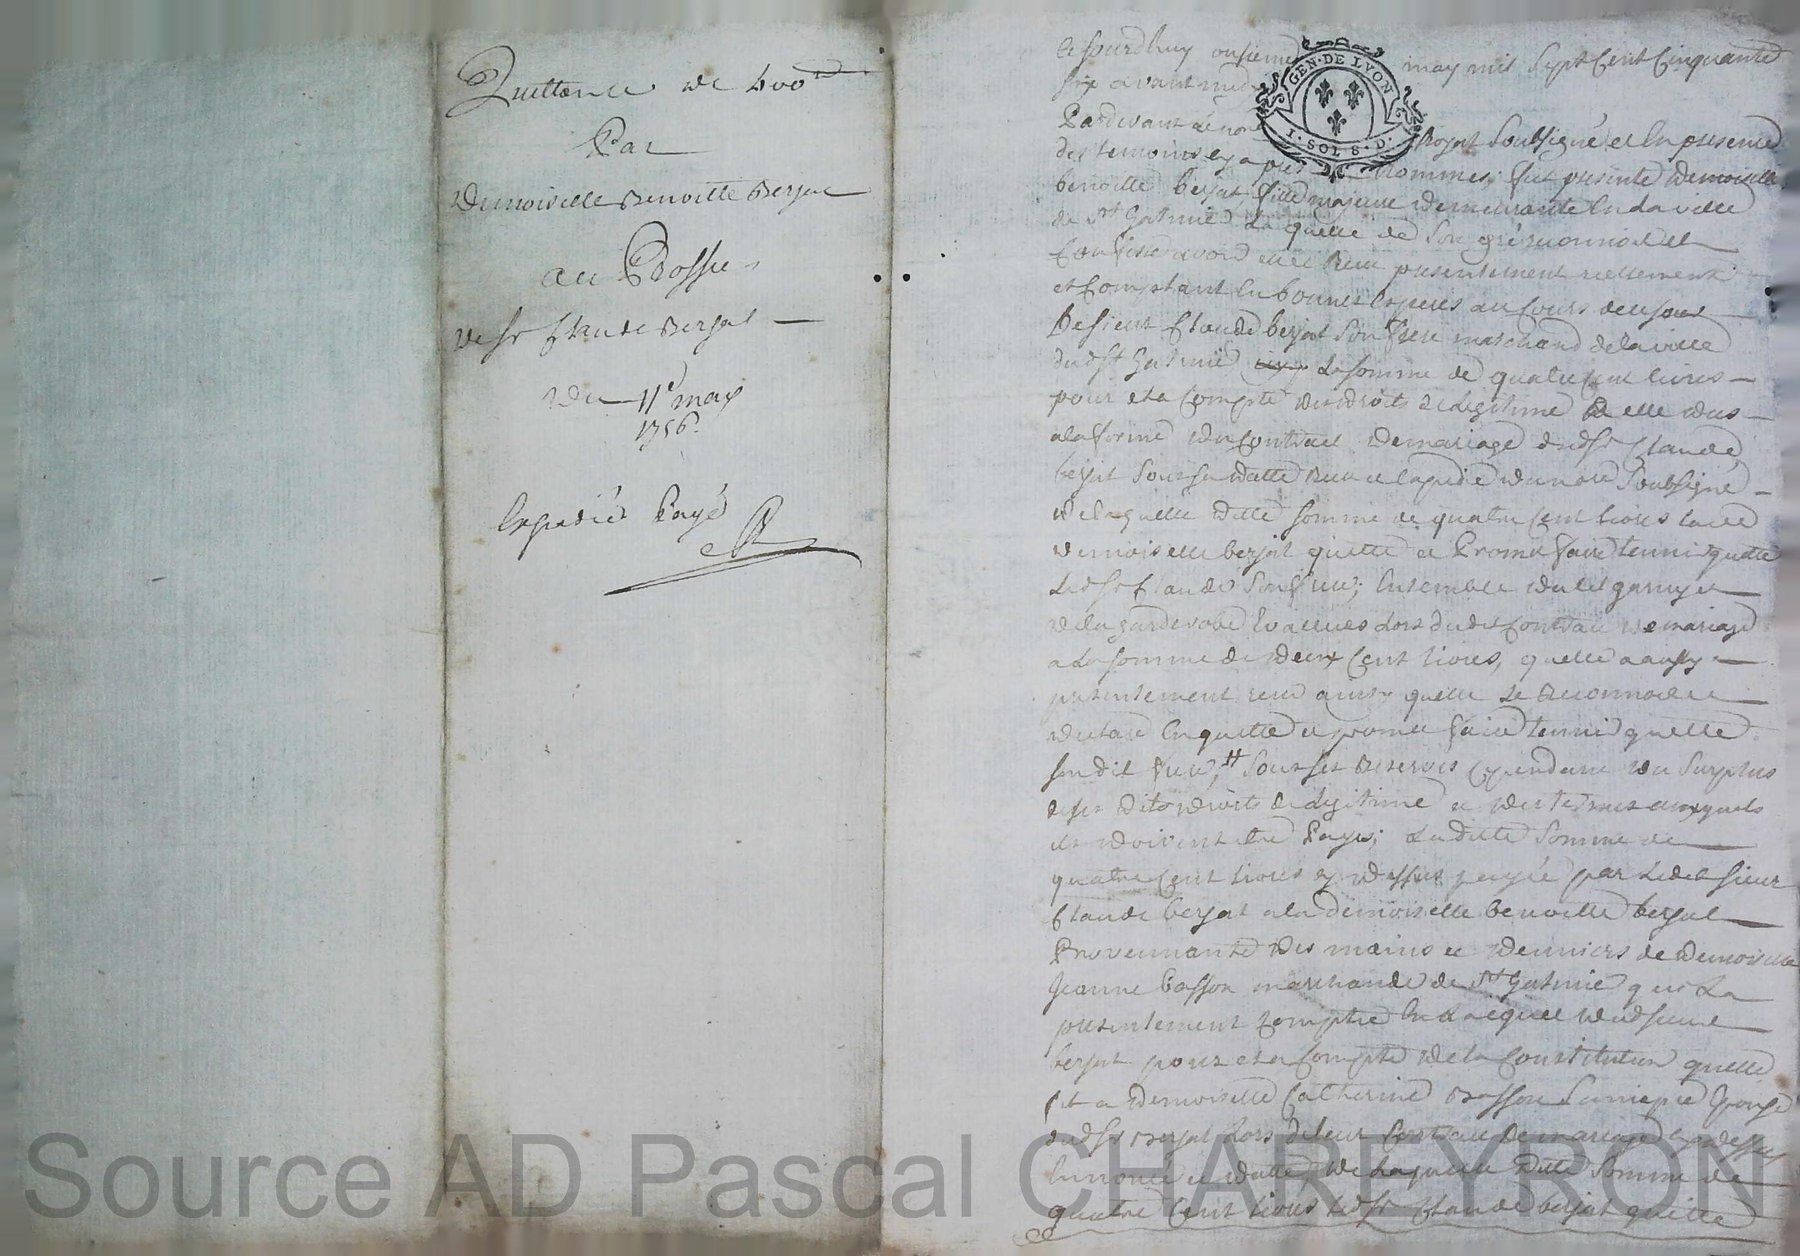 Quittance de 400ᵗᵗ
Par
Demoiselle Benoitte Berjat
au Proffit
de Sr Claude Berjat
du 11e may
1756.
Expedié Payé
GEN. DE LYON
1. SOL 8. D.
Ce jourd'huy onsieme may mil sept Cent Cinquante
six avant midy
Pardevant le no.re Royal soubsigné et en presence
des temoins cy apres nommes, fut presente demoiselle
benoitte berjat, fille majeure demeurante en la ville
de st Galmier Laquelle de son gré reconnoit et
Confesse avoir eu et Receu presentement reellement
et Comptant en bonnes especes au Cours de ce jour
De sieur Claude berjat son frere marchand de la ville
dud st Galmier La somme de quatre Cent livres
pour et a Compte des droits de legitime a elle dus
a la forme du Contrat de mariage dud Sr Claude
berjat sous sa datte Receu et Expedié du no.re soubsigné
de laquelle ditte somme de quatre Cent livres lad.
demoiselle berjat quitte et Promet faire tenir quitte
Led Sr Claude son frere; Ensemble du lit garny et
de la garderobe Evalues Lors dudit Contrat de mariage
a La somme de deux Cent livres, quelle a aussy
presentement receu ainsy quelle Le Reconnoit et
declare En quitte et promet faire tenir quitte
son dit frere, sous ses Reserves Cependant du surplus
de ses dits droits de Legitime et des termes auxquels
ils doivent etre Payes; La ditte somme de
quatre Cent livres cy dessus payée par Ledit sieur
Claude berjat a la demoiselle benoitte berjat
Provennante des mains et denniers de demoiselle
Jeanne basson marchande de st Galmier qui La
presentement Comptée En L'acquit dud sieur
berjat pour et a Compte de la Constitution quelle
fit a demoiselle Catherine Basson sa niepce Epouse
dud Sr Berjat Lors de leur Contrat de mariage cy dessus
Enoncé et datté de Laquelle ditte somme de
quatre Cent livres led Sr Claude berjat quitte
Source AD Pascal CHAREYRON